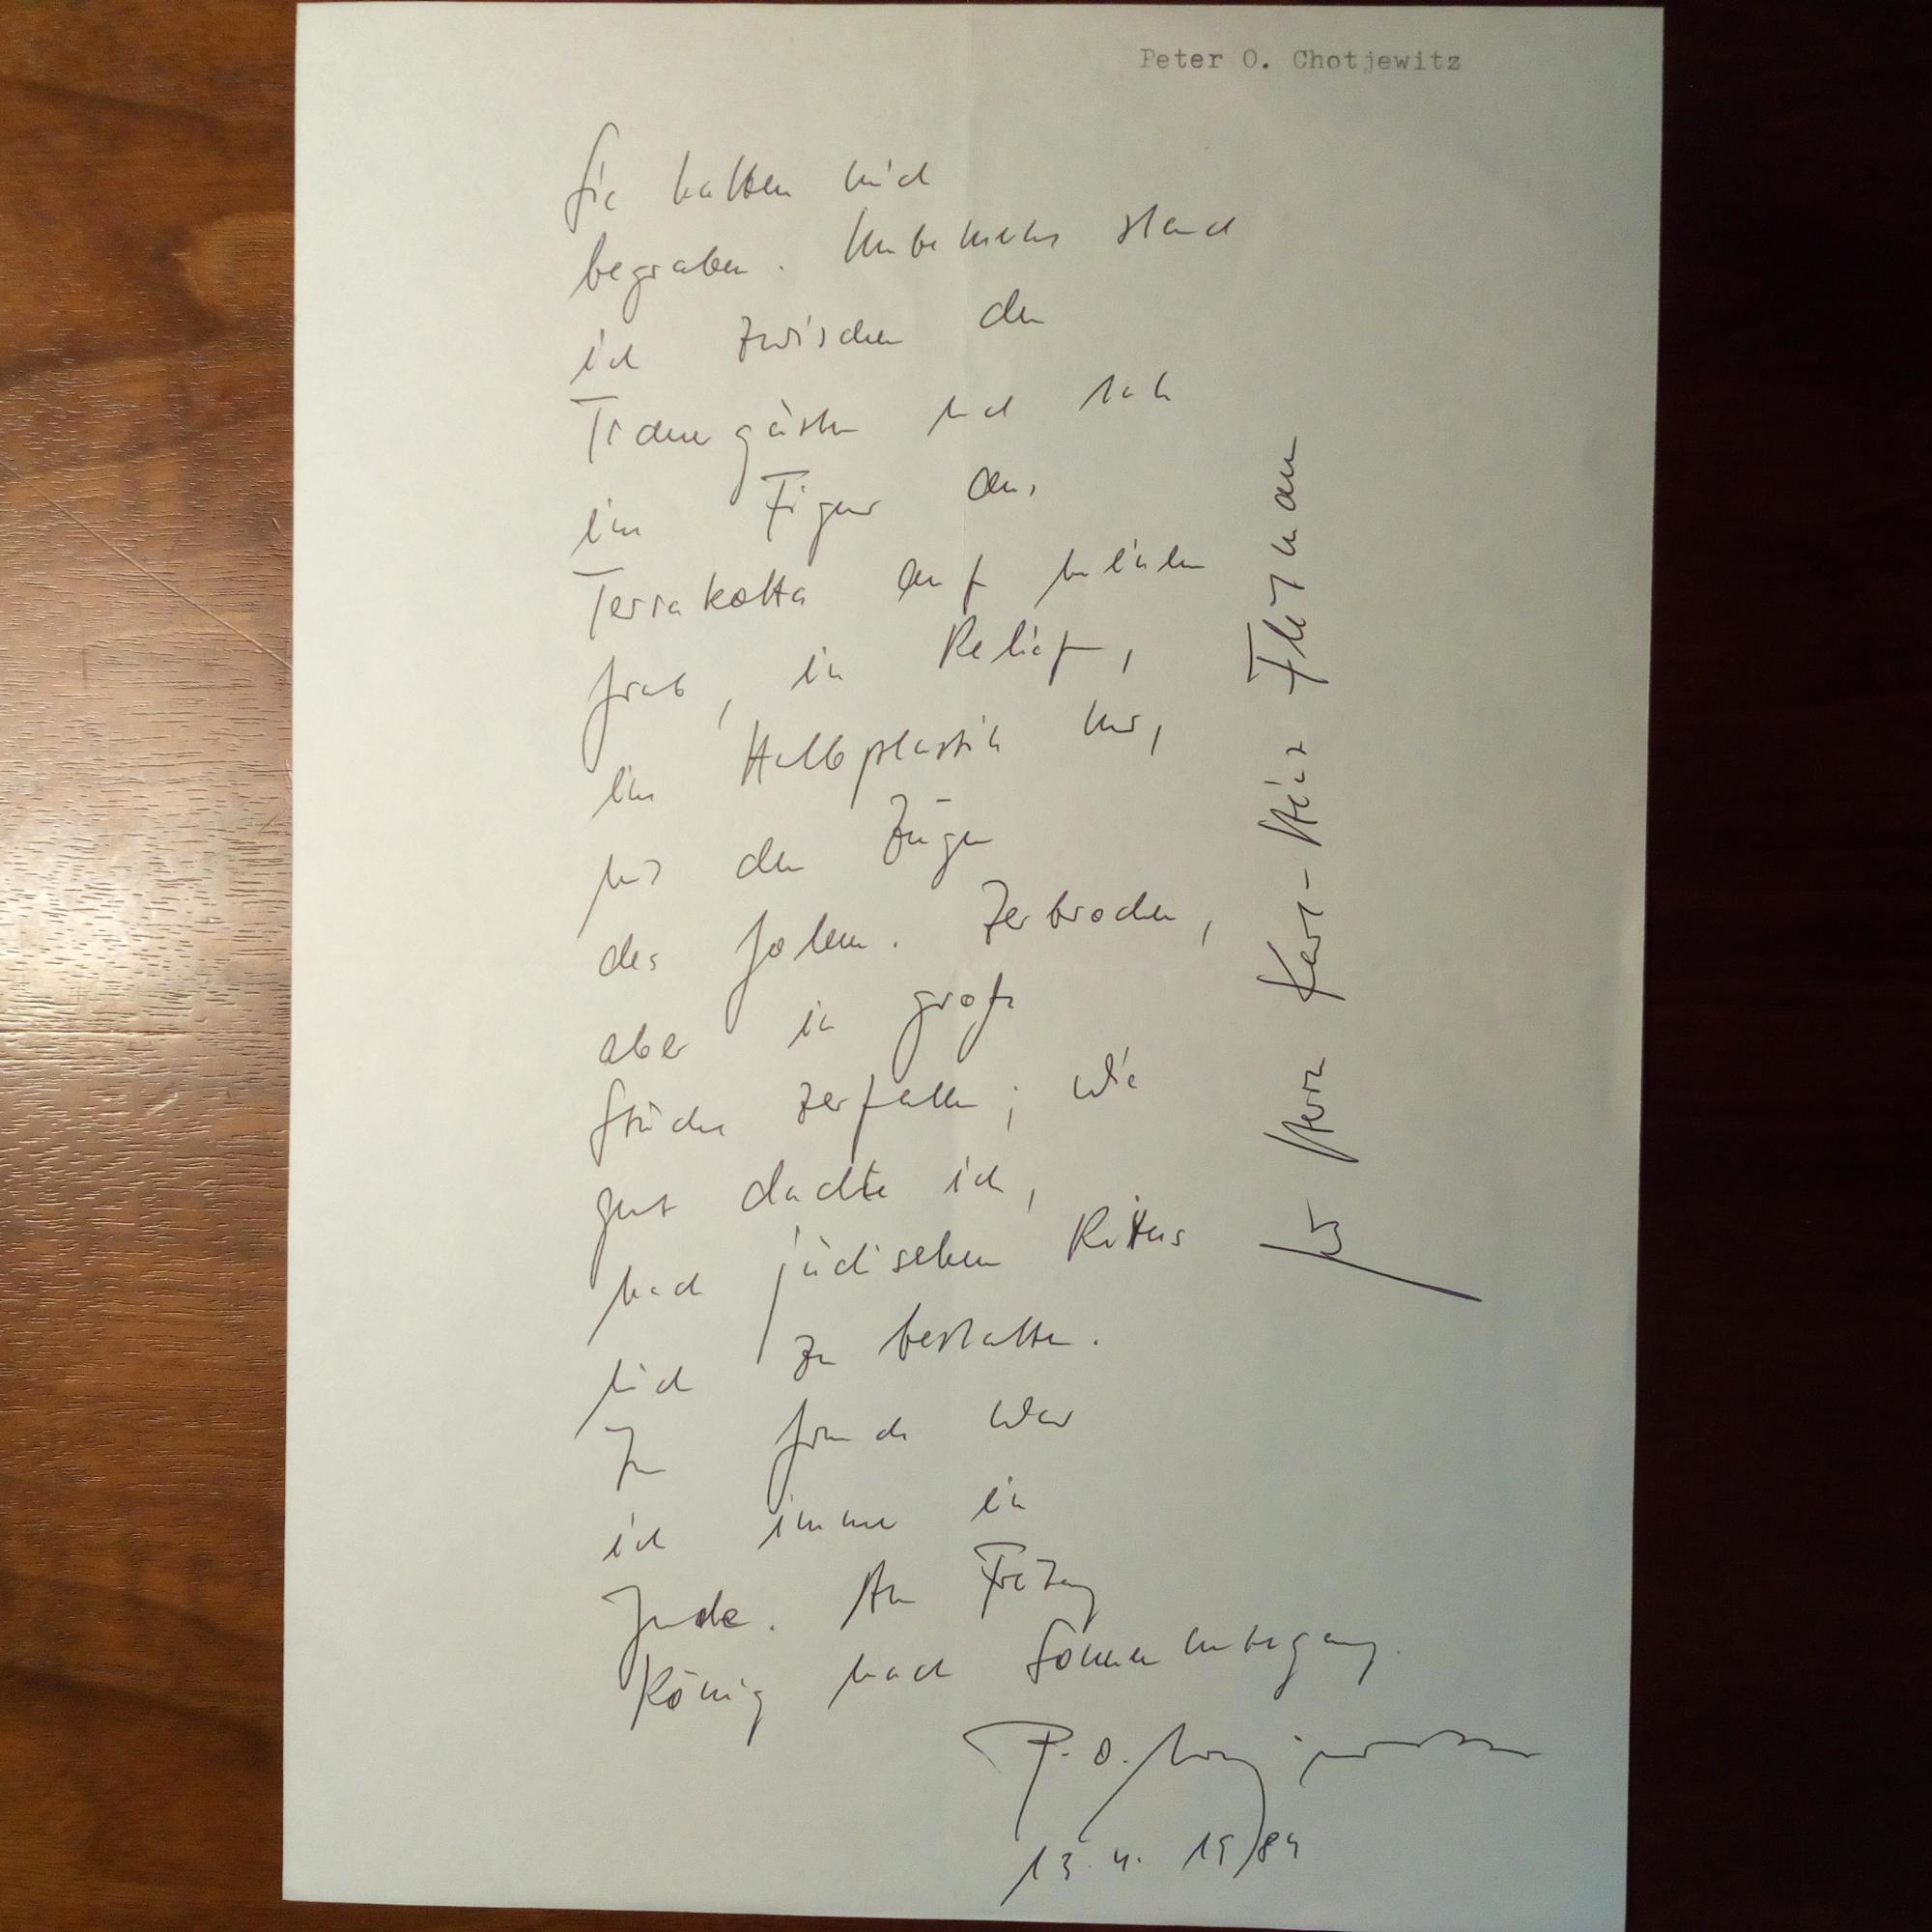 Peter O. Chotjewitz
Sie hatten mich
begraben. Unbemerkt stand
ich zwischen den
Trauergästen und sah
eine Figur aus
Terrakotta auf meinem
Grab, ein Relief,
eine Halbplastik nur,
mit den Zügen
des Golem. Zerbrochen,
aber in große
Stücke zerfallen; wie
gut dachte ich,
nach jüdischem Ritus
mich zu bestatten.
Im Grunde war
ich immer ein
Jude. Am Freitag
König nach Sonnenuntergang.
P. O. Chotjewitz
13. 4. 1984
für Herrn Karl-Heinz